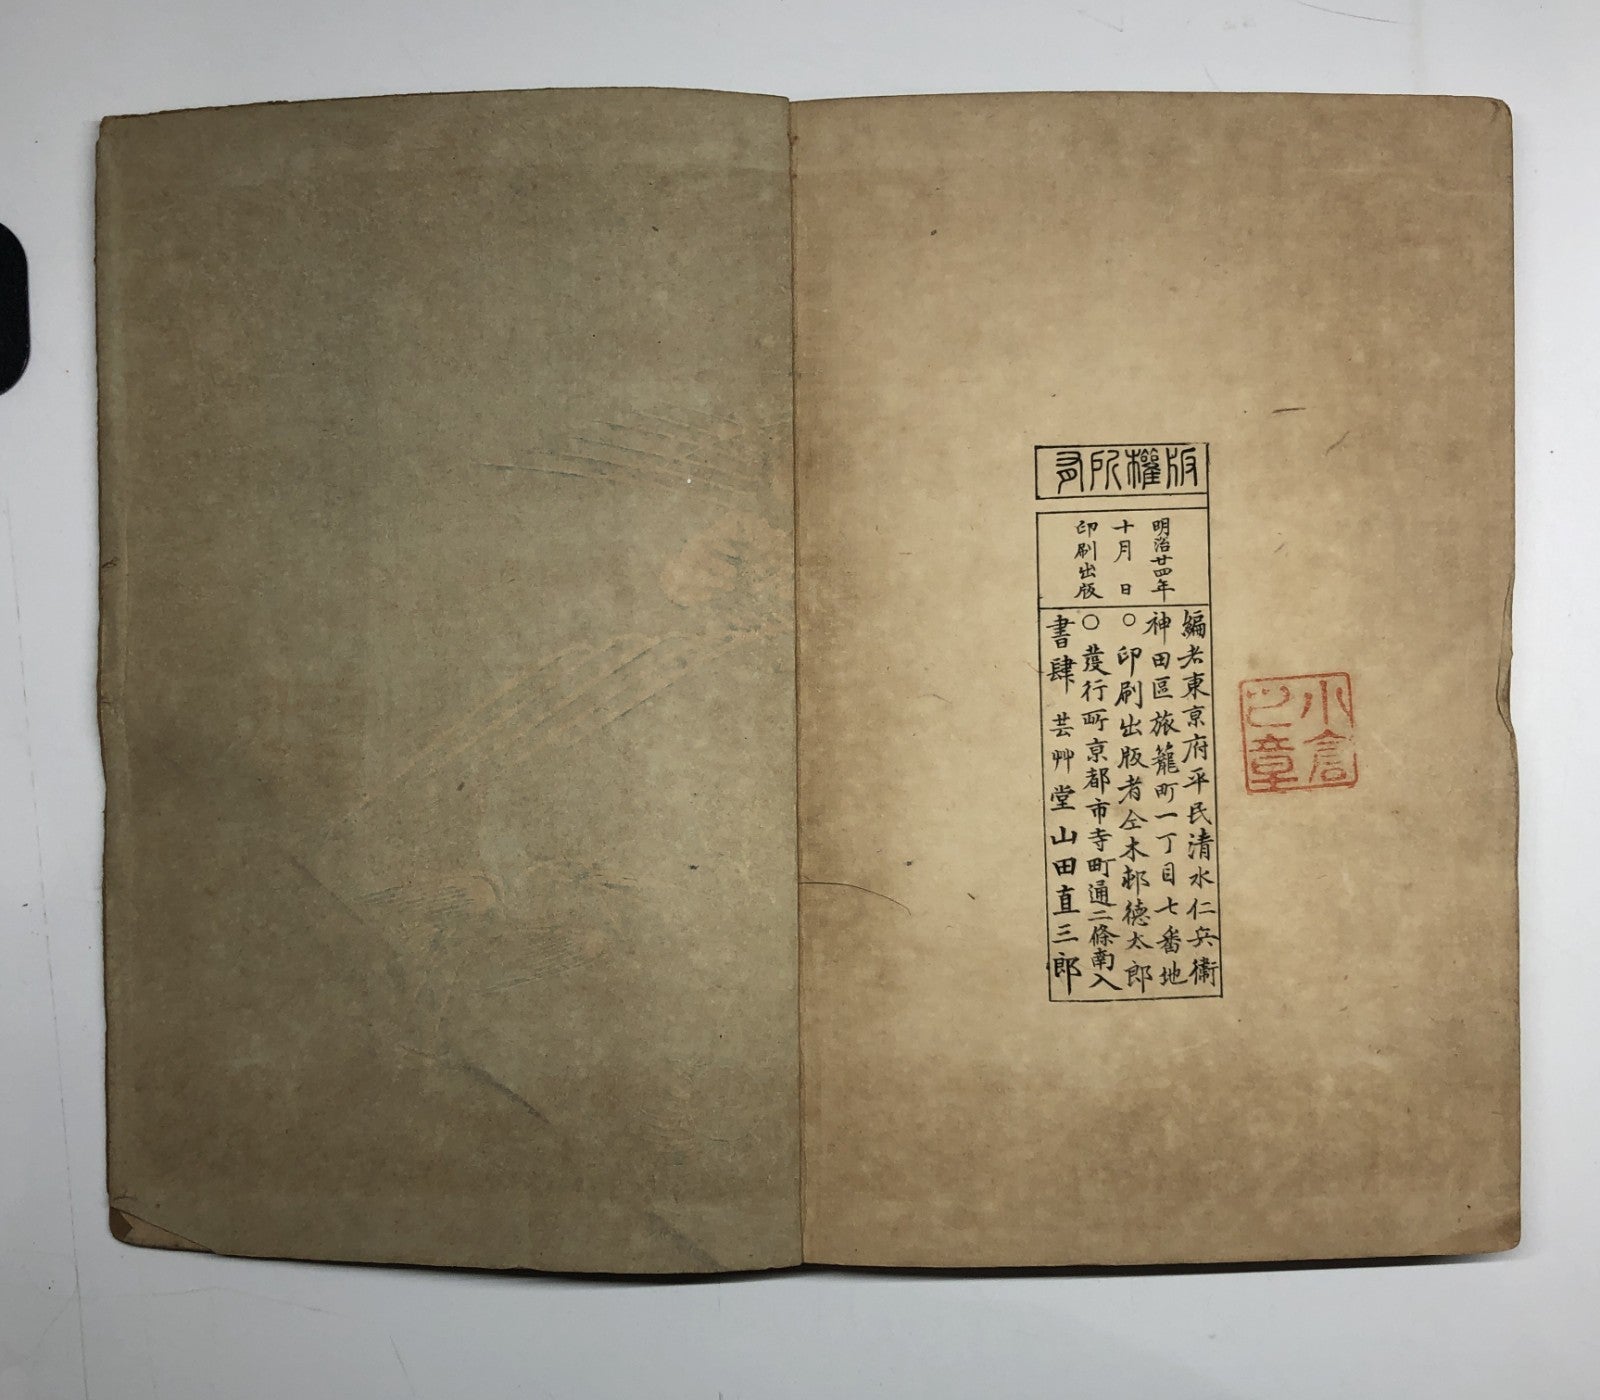 小倉
之章
版權所有
明治廿四年
十月　日
印刷出版
編者東京府平民清水仁兵衞
神田區旅籠町一丁目七番地
○印刷出版者仝木邨徳太郎
○發行所京都市寺町通二條南入
書肆　芸艸堂山田直三郎